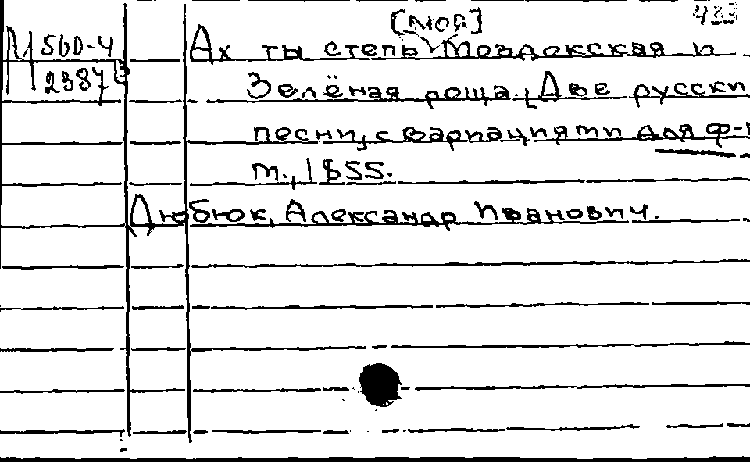 [моя] 433
М 560-4 Ах ты степь Моздокская и
2387 Зелёная роща. Две русски
песни, с вариациями для ф-
т., 1855.
Дюбюк, Александр Иванович.